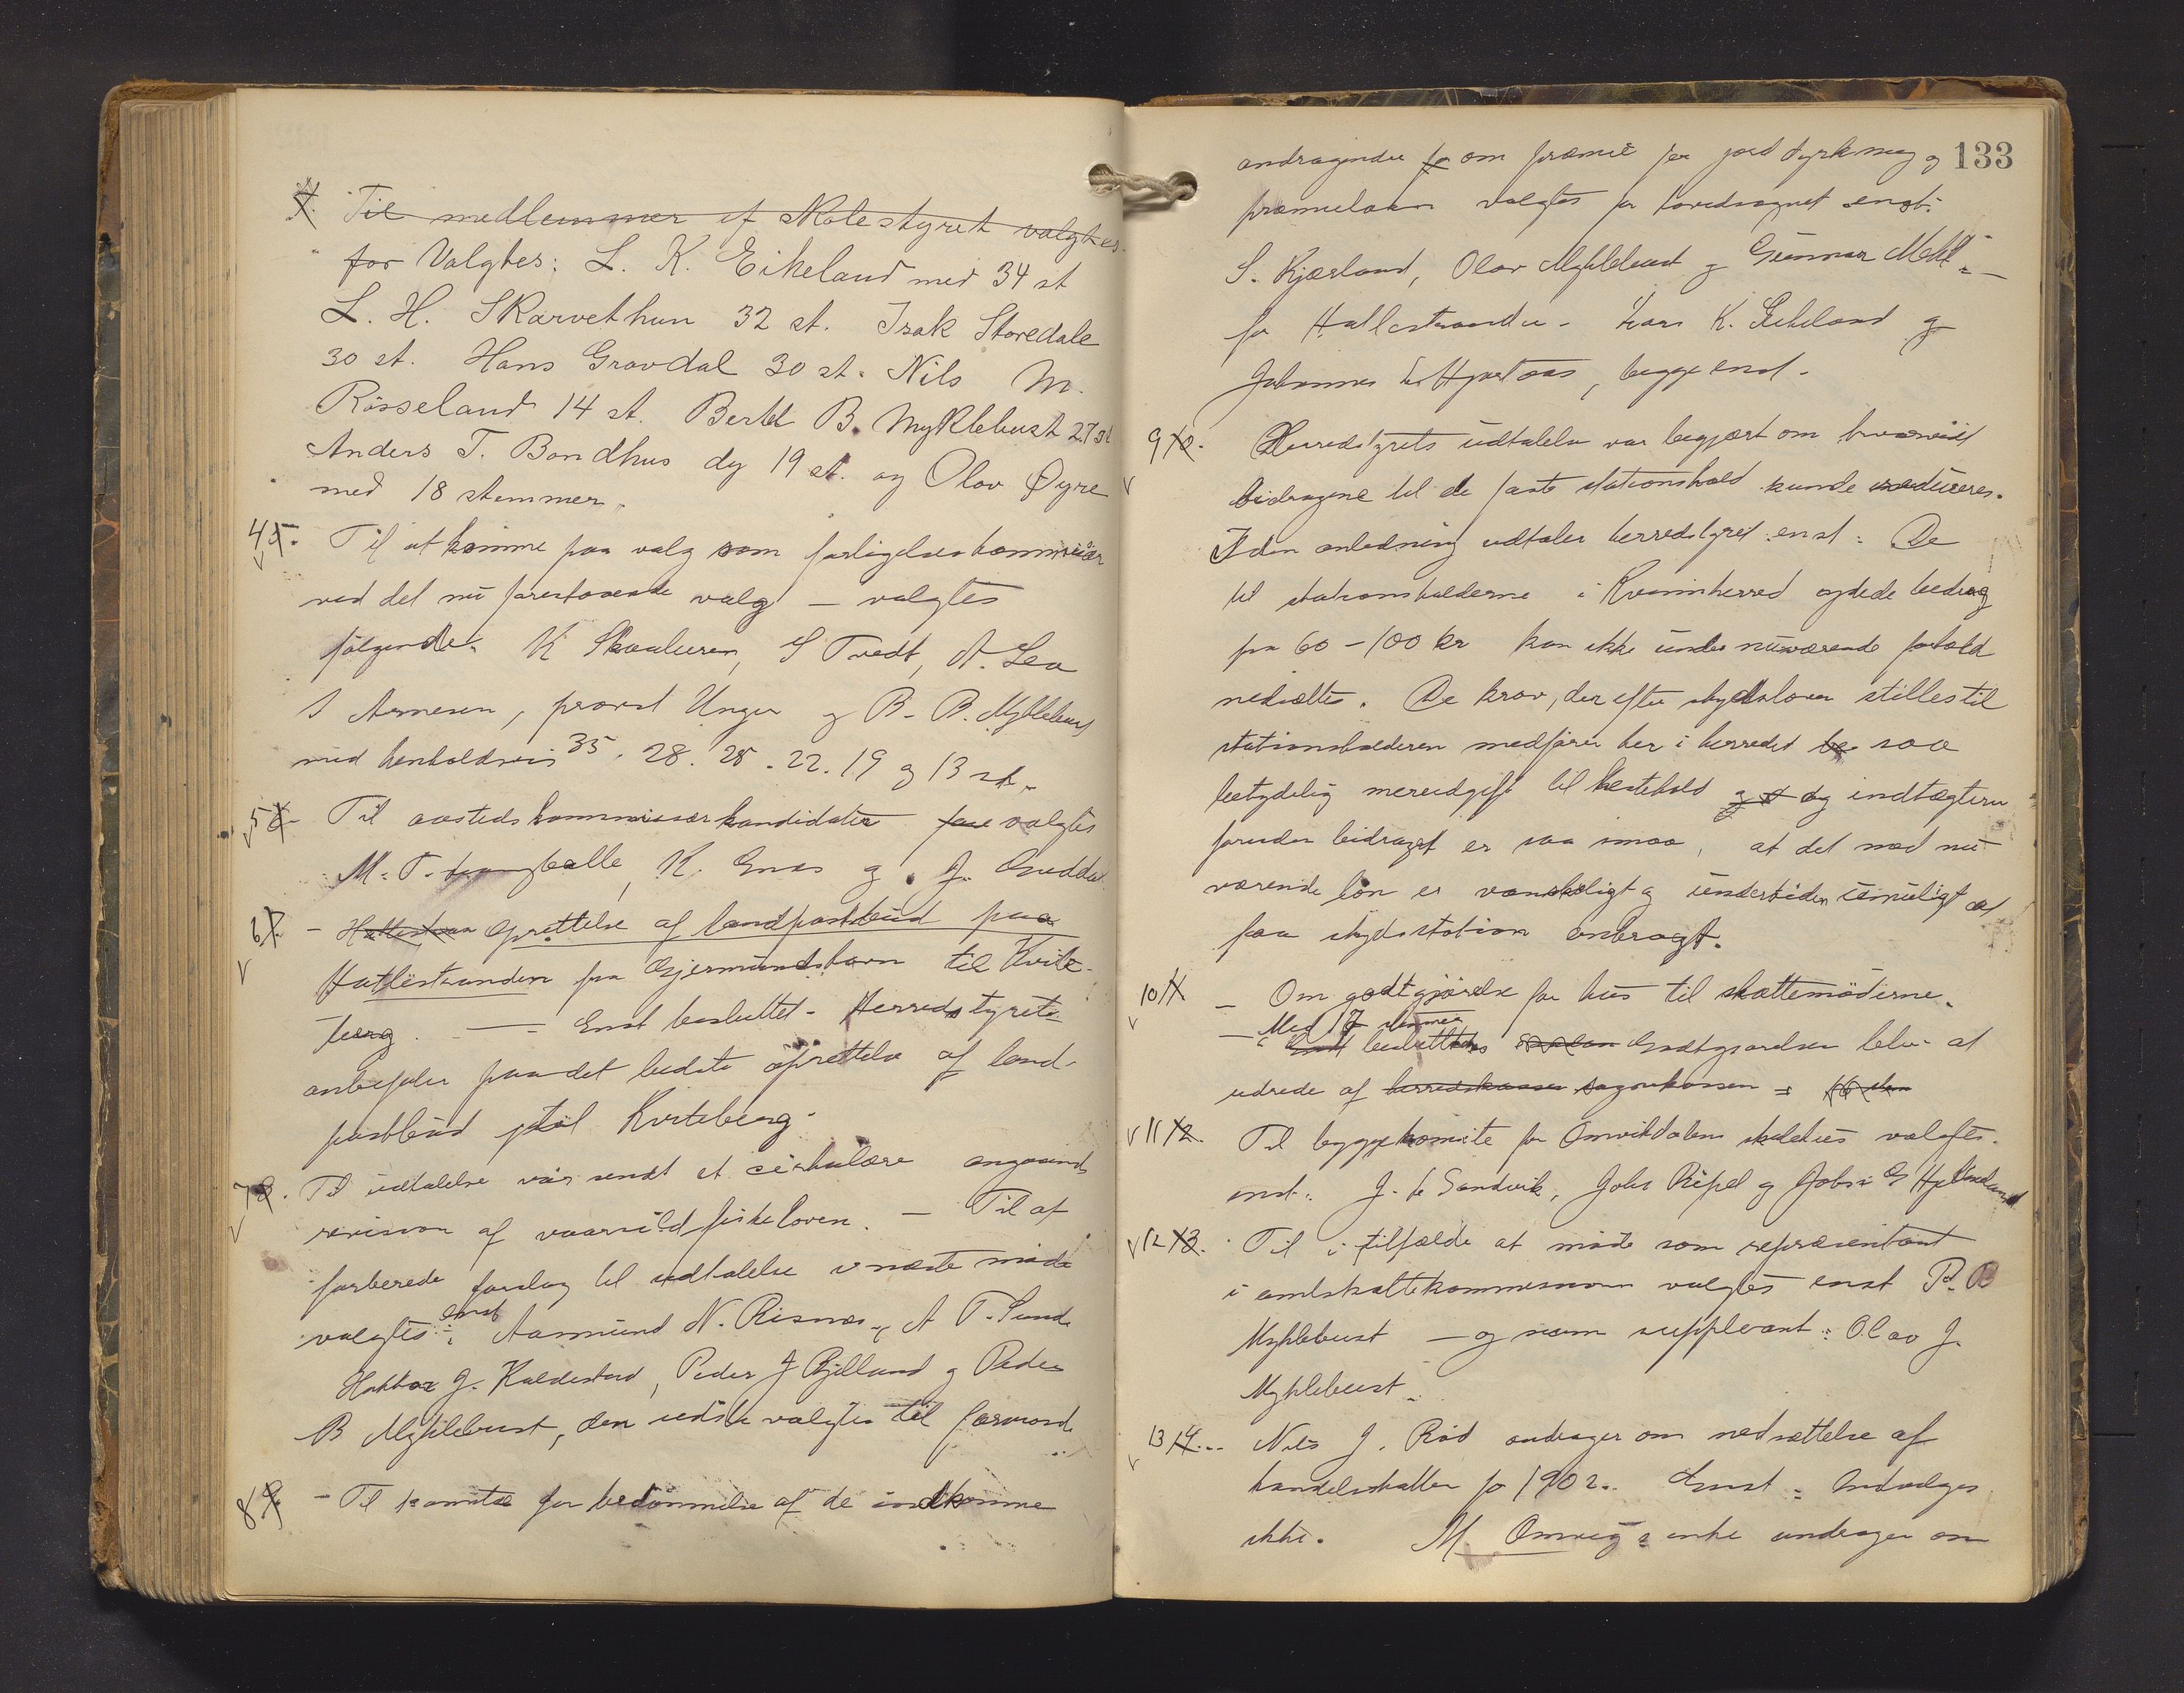 4. Til medlemmer af skolestyret valgtes
for Valgtes: L. K. Eikeland med 34 st
L. H. Skarvethun 32 st. Isak Storedale
30 st. Hans Gravdal 30 st. Nils M.
Rösseland 14 st. Bertel B. Myklebust 27 st
Anders T. Bondhus dy 19 st. og Olav Øyre
med 18 stemmer.
4 5. Til at komme paa valg som forligelseskommissær
ved det nu forestaaende valg – valgtes
følgende: K Skaaluren, S Tvedt, A. Lea
S Arnesen, provst Unger og B. B. Myklebust
med henholdsvis 35. 28. 28. 22. 19 og 13 st.
5 6 Til aastedskommissærkandidater valgtes
M. T. K. Enes og J. Guddal
6 7. – Hattestran Oprettelse af landpostbud paa
Hatlestranden fra Gjermundshavn til Kvite-
berg. –– Enst besluttet. Herredstyret
anbefaler paa det bedste oprettelse af land-
postbud til Kviteberg.
7 8. Til udtalelse var sendt et cirkulære angaaende
revision af vaarsildfiskeloven. – Til at
forberede forslag til udtalelse i næste møde
valgtes enst: Aamund N. Risnes, A T. Sunde
Haktor J. Kaldestad, Peder J Bjelland og Peder
B Myklebust, den sidste valgtes til formand.
8 9. – Til komite for bedømmelse af de indkomne
133
andragender om præmie for jorddyrkning og
præmielaan valgtes for hovedsognet enst:
S. Kjærland, Olav Myklebust og Gunnar Mehl
for Hatlestranden. Lars K. Eikeland og
Johannes Hjortaas, begge enst.
9 10. Herredstyrets udtalelse var begjært om hvorvidt
bidragene til de faste stationshold kunde reduceres.
I den anledning udtaler herredstyret enst: De
til stationsholderne i Kvinnherred ydede bidrag
fra 60 – 100 kr kan ikke under nuværende forhold
nedsættes. De krav, der efter skydsloven stilles til
stationsholderen medfører her i herredet saa
betydelig merudgift til hestehold og indtægterne
foruden bidraget er saa smaa, at det med nu-
værende løn er vanskeligt og undertiden umuligt at
faa skydsstation anbragt.
10 11 – Om godtgjørelse for hus til skattemøderne.
– Med 17 stemmer
Enst besluttedes Godtgjørelsen blev at
udrede af herredskassen sognekassen = 16 stm
11 12. Til byggekomite for Omvikdalens skolehus valgtes
enst: J. L Sandvik, Johs Ripel og Johs G Hjelmeland
12 13. Til i tilfælde at møde som repræsentant
i amtsskattekommissionen valgtes enst P. B
Myklebust – og som suppleant: Olav J.
Myklebust.
13 14. Nils J. Rød andrager om nedsættelse af
handelsskatten for 1902. Enst: Indvilges
ikke. M. Omvig's enke andrager om